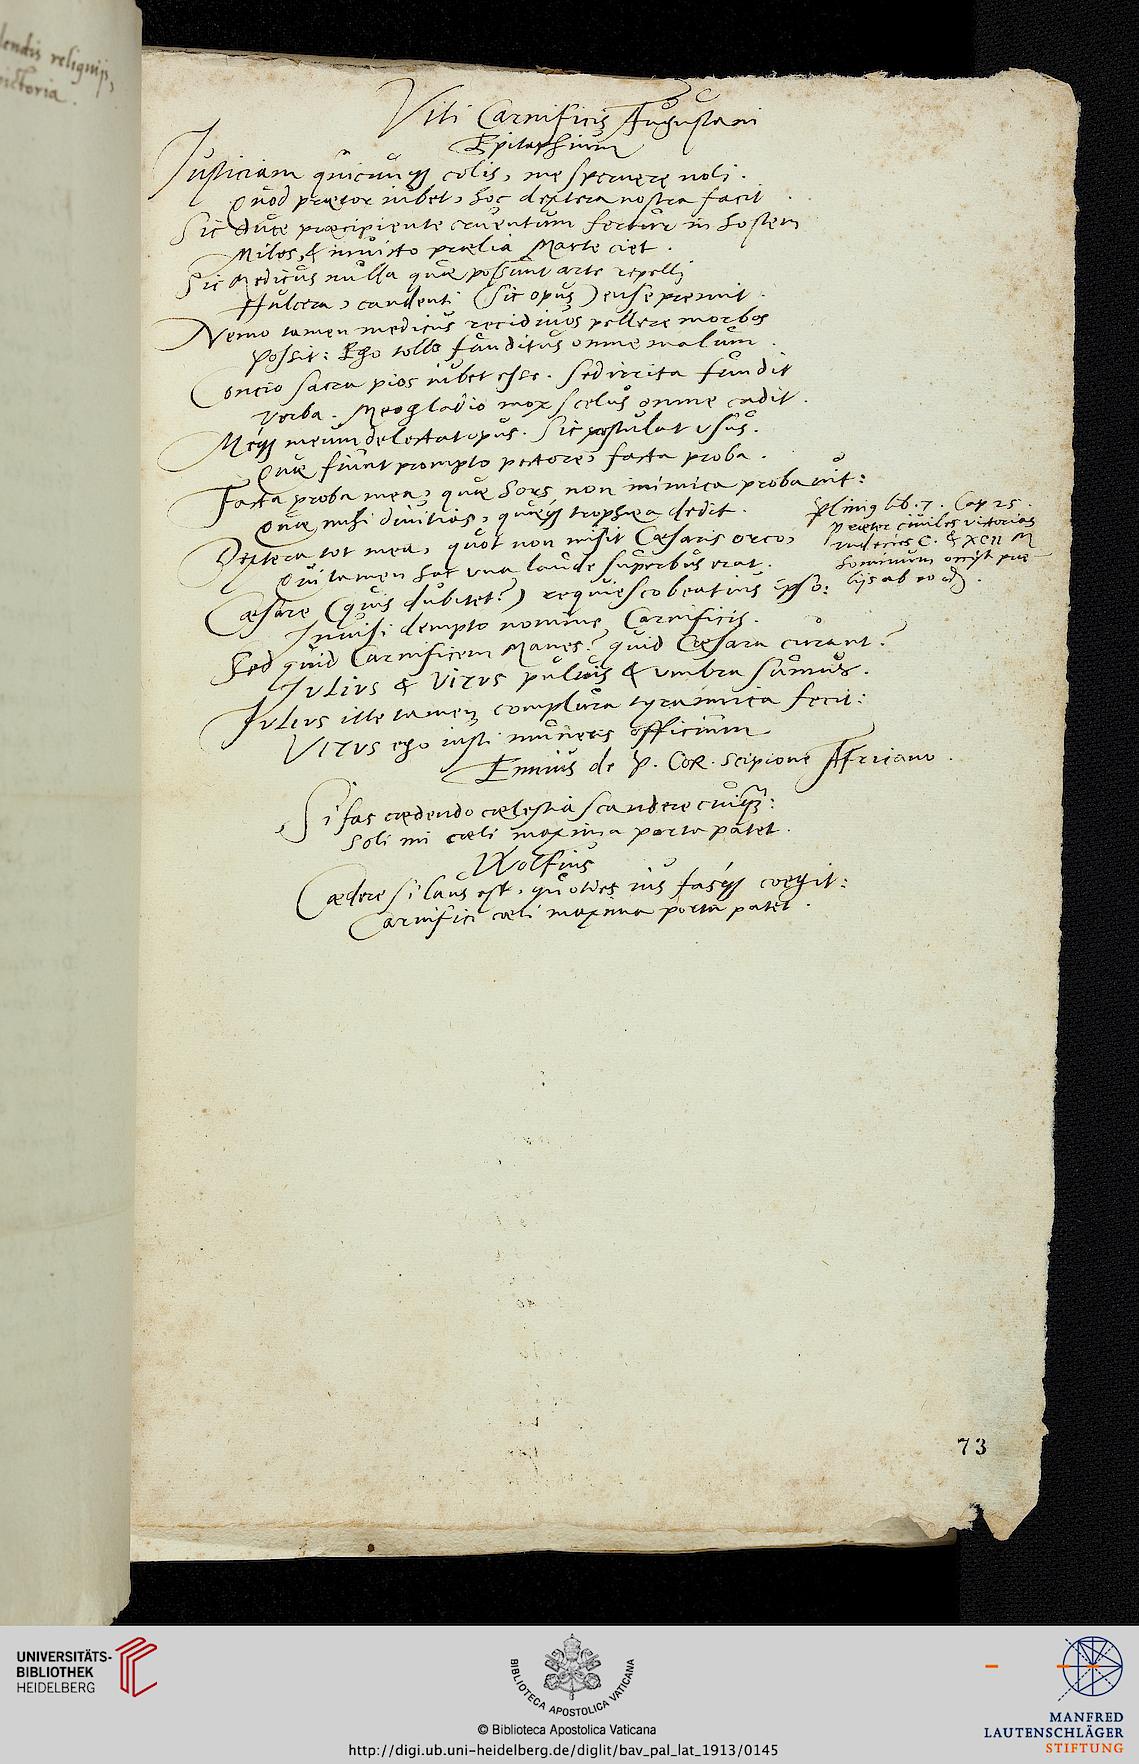 lendis reliquijs,
victoria.
Viti Carnificis Augustani
Epitaphium
Iusticiam quicunque colis, me spernere noli.
Quod praetor iubet, hoc dextera nostra facit.
Sic duce praecipiente cruentum fertur in hostem
Miles, & inuicto praelia Marte ciet.
Sic Medicus nulla quae possunt arte repelli
Hulcera, candenti (sic opus) ense premit.
Nemo tamen medicus recidiuos pellere morbos
Possit: Ego tollo funditus omne malum.
Concio sacra pios iubet esse. sed irrita fundit
Verba. Meo gladio mox scelus omne cadit.
Meque meum delectat opus. Sic postulat vsus.
Quae fiunt prompto pectore, facta proba.
Facta proba mea, quae sors non inimica probauit:
Quae mihi diuitias, quaeque trophaea dedit.
Dextera tot mea, quot non misit Caesaris orco,
Qui tamen hac vna laude superbus erat.
Caesare (quis dubitet?) requiesco beatius ipso:
Inuisi dempto nomine Carnificis.
Sed quid Carnificem Manes? quid Caesara curant?
IVLIVS & VITVS puluis & vmbra sumus.
IVLIVS ille tamen complura tyrannica fecit:
VITVS ego iusti muneris officium.
Plinius lib. 7. Cap 25.
Praeter ciuiles victorias
vndecies C. & XCII M
hominum occisa prae
lijs ab eo
Ennius de P. COR. Scipione Africano.
Si fas caedendo caelestia scandere cuiquam:
Soli mi caeli maxima porta patet.
Wolfius
Caedere si laus est, quoties ius fasque coegit:
Carnifici caeli maxima porta patet.
73
UNIVERSITÄTS-
BIBLIOTHEK
HEIDELBERG
BIBLIOTECA APOSTOLICA VATICANA
© Biblioteca Apostolica Vaticana
http://digi.ub.uni-heidelberg.de/diglit/bav_pal_lat_1913/0145
MANFRED
LAUTENSCHLÄGER
STIFTUNG